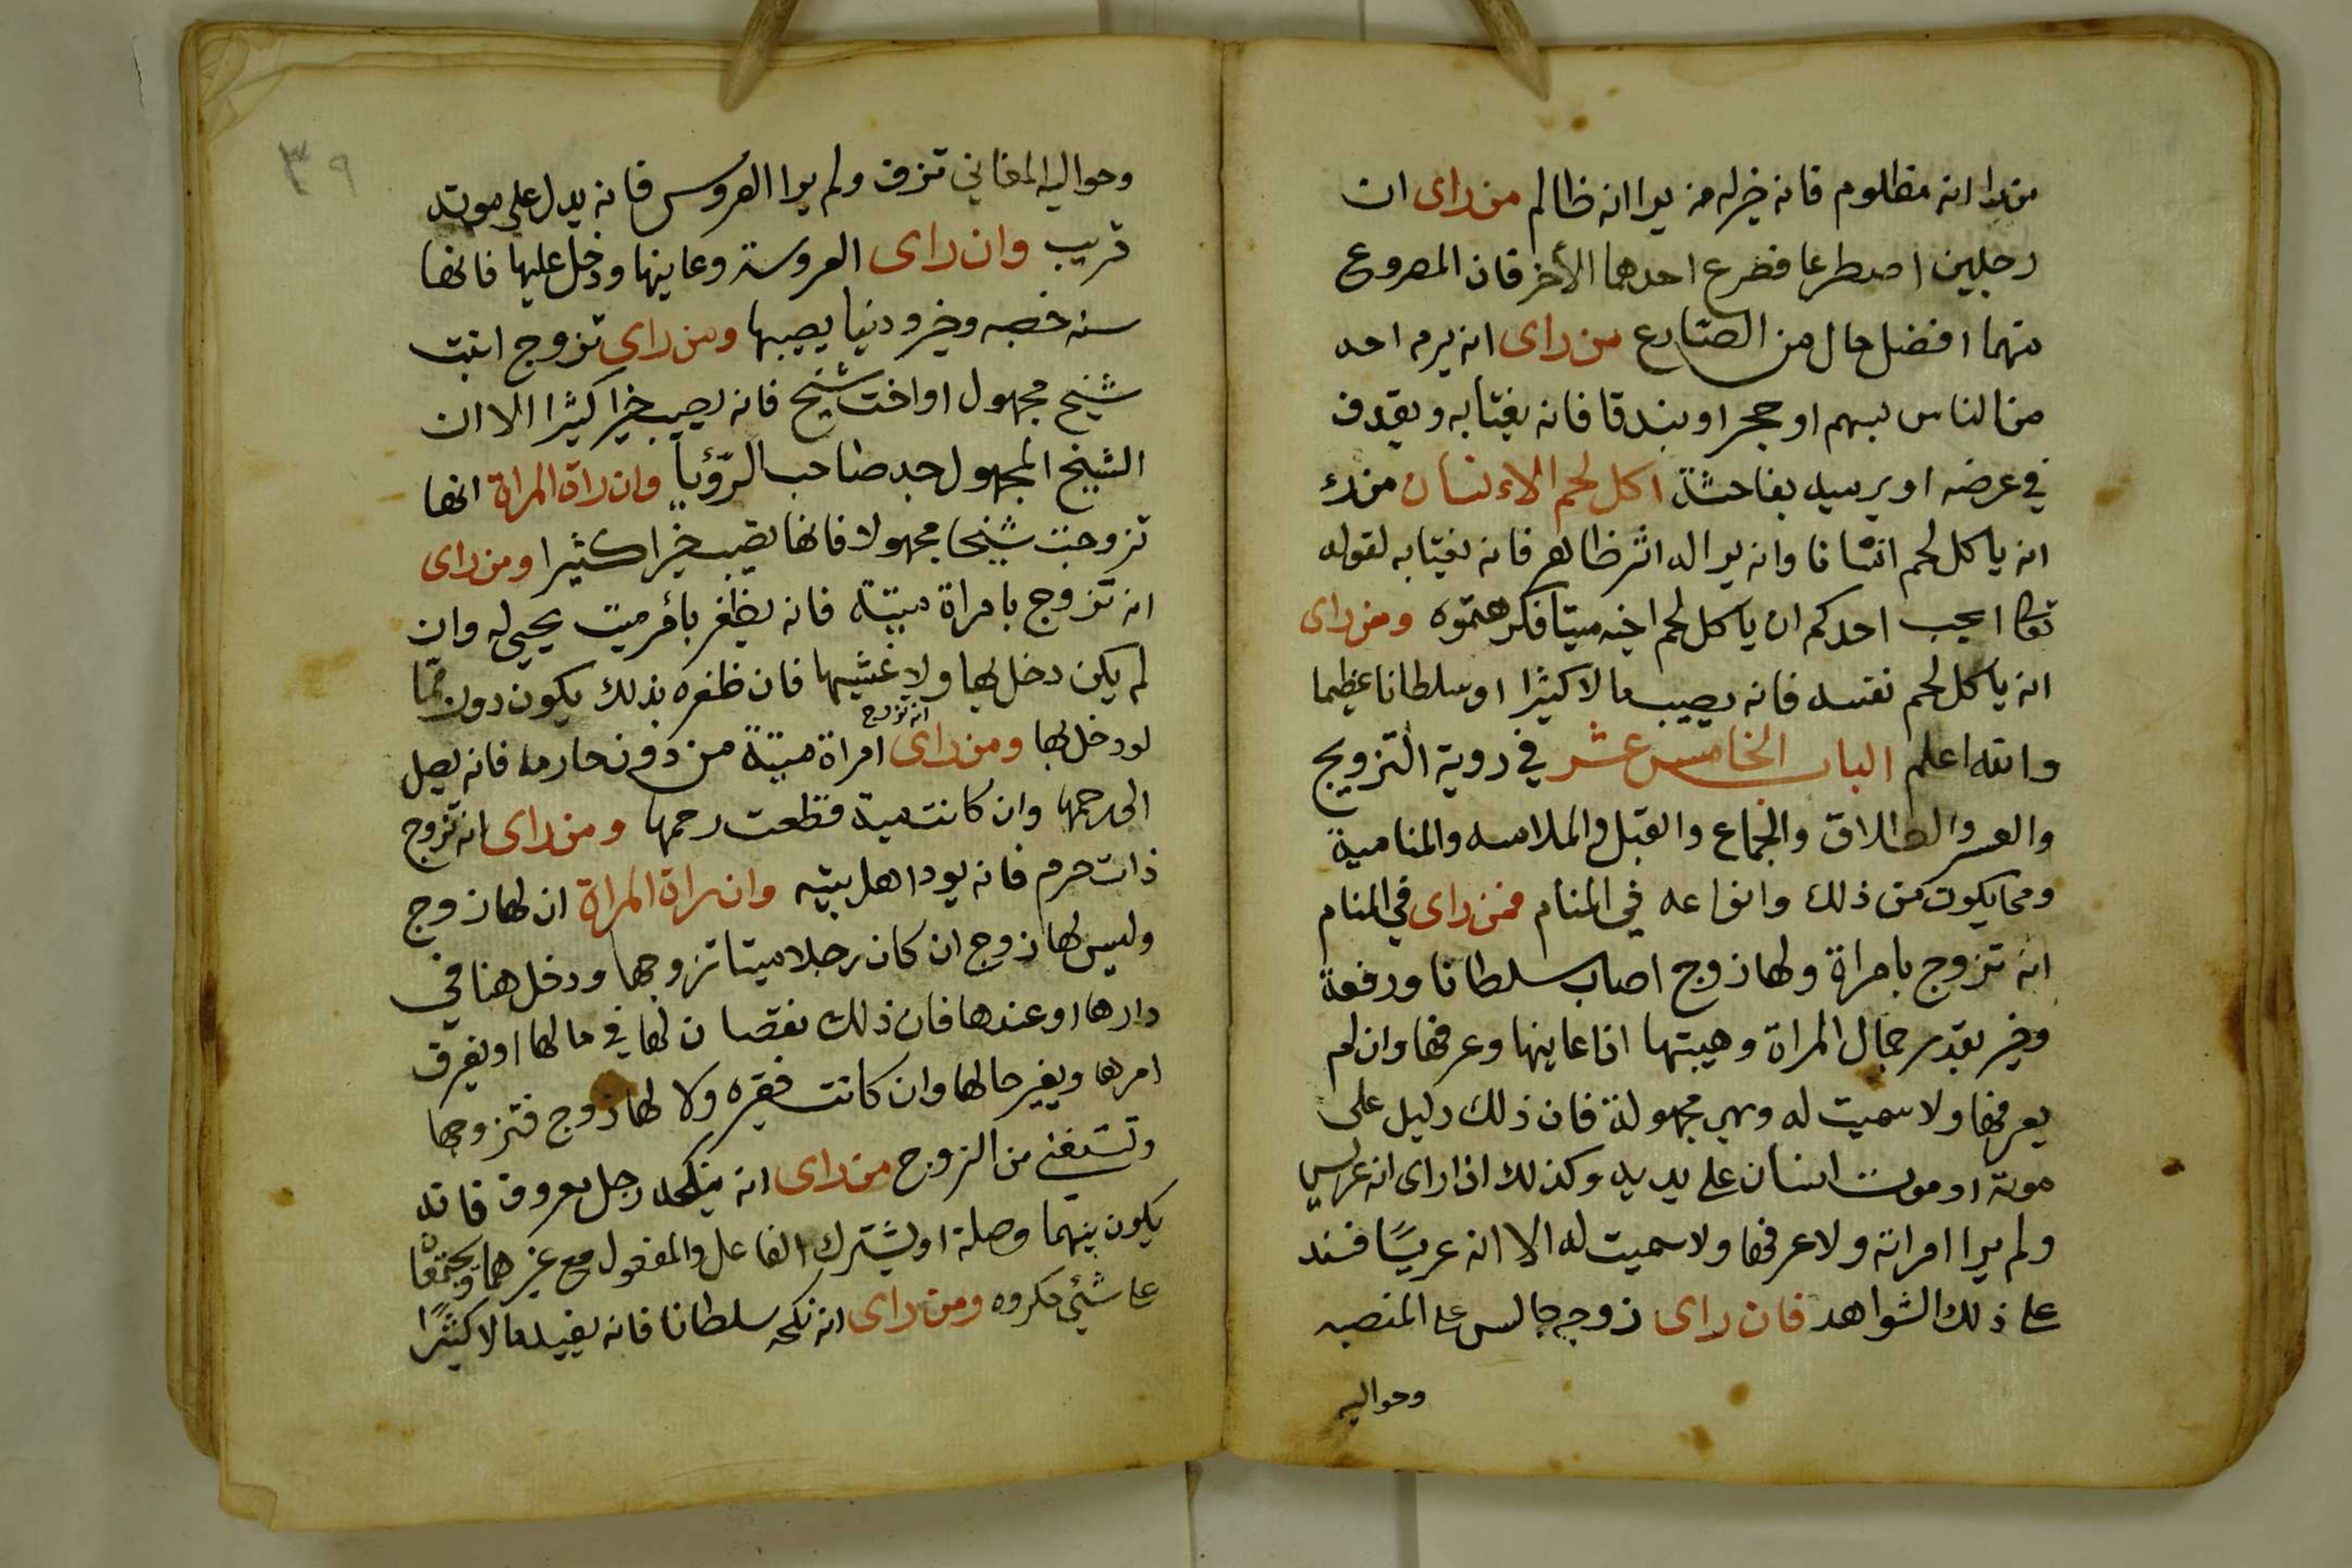 من يرا انه مظلوم فانه خير له من يرا انه ظالم من راى ان
رجلين اصطرعا فصرع احدهما الأخر فان المصروع
منهما افضل حال من الصارع من راى انه يرم احد
من الناس بسهم او حجر او بندقا فانه يغتابه ويقدف
في عرضه او يرميه بفاحشة اكل لحم الانسان من راء
انه ياكل لحم انسانا وانه يرا له اثر ظاهر فانه يغتابه لقوله
تعالى ايحب احدكم ان ياكل لحم اخيه ميتا فكرهتموه ومن راى
انه ياكل لحم نفسه فانه يصيب مالا كثيرا او سلطانا عظيما
والله اعلم الباب الخامس عشر في روية التزويج
والعرس والطلاق والجماع والقبل والملامسه والمنامية
ومما يكون من ذلك وانواعه في المنام فمن راى في المنام
انه تزوج بامراة ولها زوج اصاب سلطانا ورفعة
وخير بقدر جمال المراة وهيبتها اذا عاينها وعرفها وان لم
يعرفها ولا سميت له وهي مجهولة فان ذلك دليل على
موته او موت انسان على يديه وكذلك اذا راى انه عريس
ولم يرا امراته ولا عرفها ولا سميت له الا انه عريسًا فسند
على ذلك الشواهد فان راى زوج جالس على المنصبه
وحواليه
٣٩
وحواليه المغاني تزف ولم يرا العروس فانه يدل على موته
قريب وان راى العروسة وعاينها ودخل عليها فانها
سنه خصبه وخير ودنيا يصيبها ومن راى تزوج ابنت
شيخ مجهول او اخت شيخ فانه يصيب خيرا كثيرا الا ان
الشيخ المجهول جد صاحب الرؤيا وان راة المراة انها
تزوجت شيخا مجهولا فانها تصيب خيرا كثيرا ومن راى
انه تزوج بامراة ميتة فانه يظفر بأمر ميت يحيى له وان
لم يكن دخل بها ولا غشيها فان ظفره بذلك يكون دون مما
لو دخل بها ومن راى انه تزوج امراة ميتة من دون محارمه فانه يصل
الى رحمها وان كانت مية قطعت رحمها ومن راى انه تزوج
ذات حرم فانه يودا هل بيته وان راة المراة ان لها زوج
وليس لها زوج ان كان رجلا ميتا تزوجها ودخل هنا في
دارها او عندها فان ذلك نقصان لها في مالها او يفرق
امرها ويغير حالها وان كانت فقيره ولا لها زوج فتزوجها
وتستغني من الزوج من راى انه ينكحه رجل معروف فانه
يكون بينهما وصلة او يشترك الفاعل والمفعول مع غيرهما ويجتمعان
على شئي مكروه ومن راى انه نكحه سلطانا فانه يفيده مالا كثيرًا